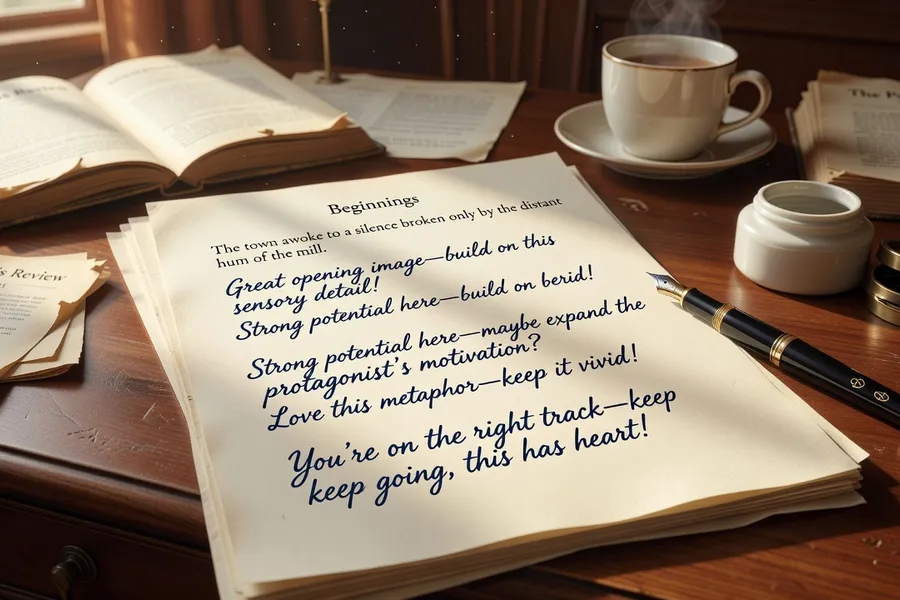 Beginnings
The town awoke to a silence broken only by the distant
hum of the mill.
Great opening image—build on this
sensory detail!
Strong potential here—build on berid!
Strong potential here—maybe expand the
protagonist's motivation?
Love this metaphor—keep it vivid!
You're on the right track—keep
keep going, this has heart!
's Review
The